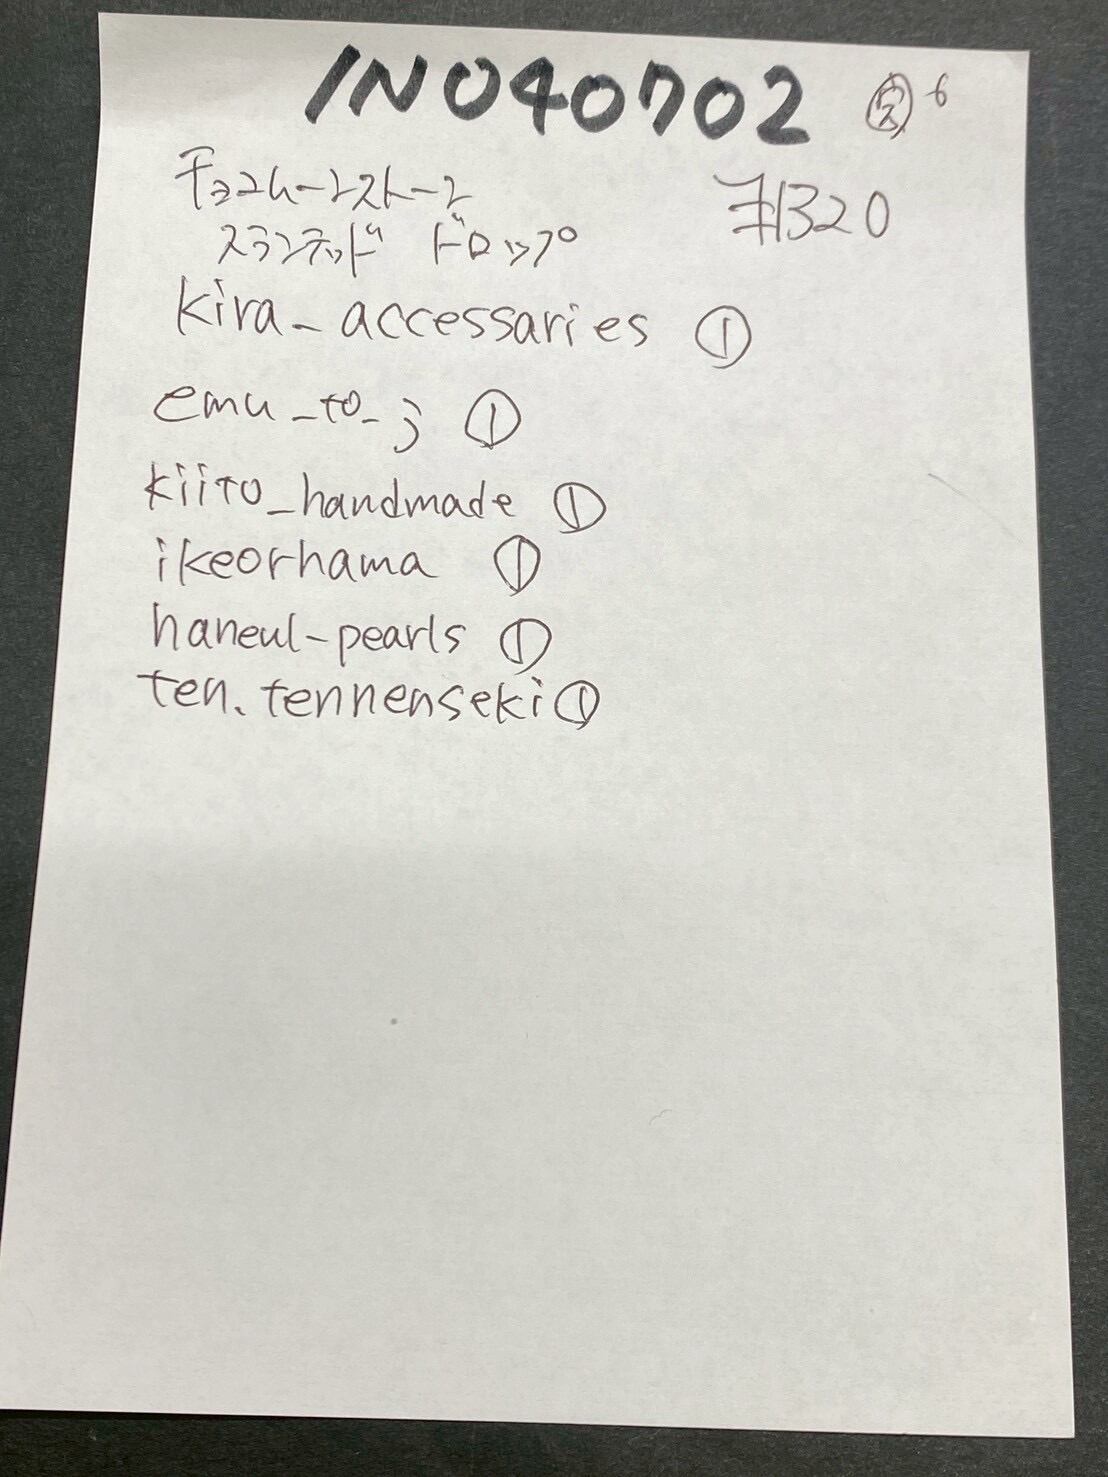 IN040702 -6
チョコムーンストーン ¥1320
スランテッド ドロップ
kira_accessaries ①
emu_to_j ①
kiito_handmade ①
ikeorhama ①
haneul-pearls ①
ten.tennenseki ①